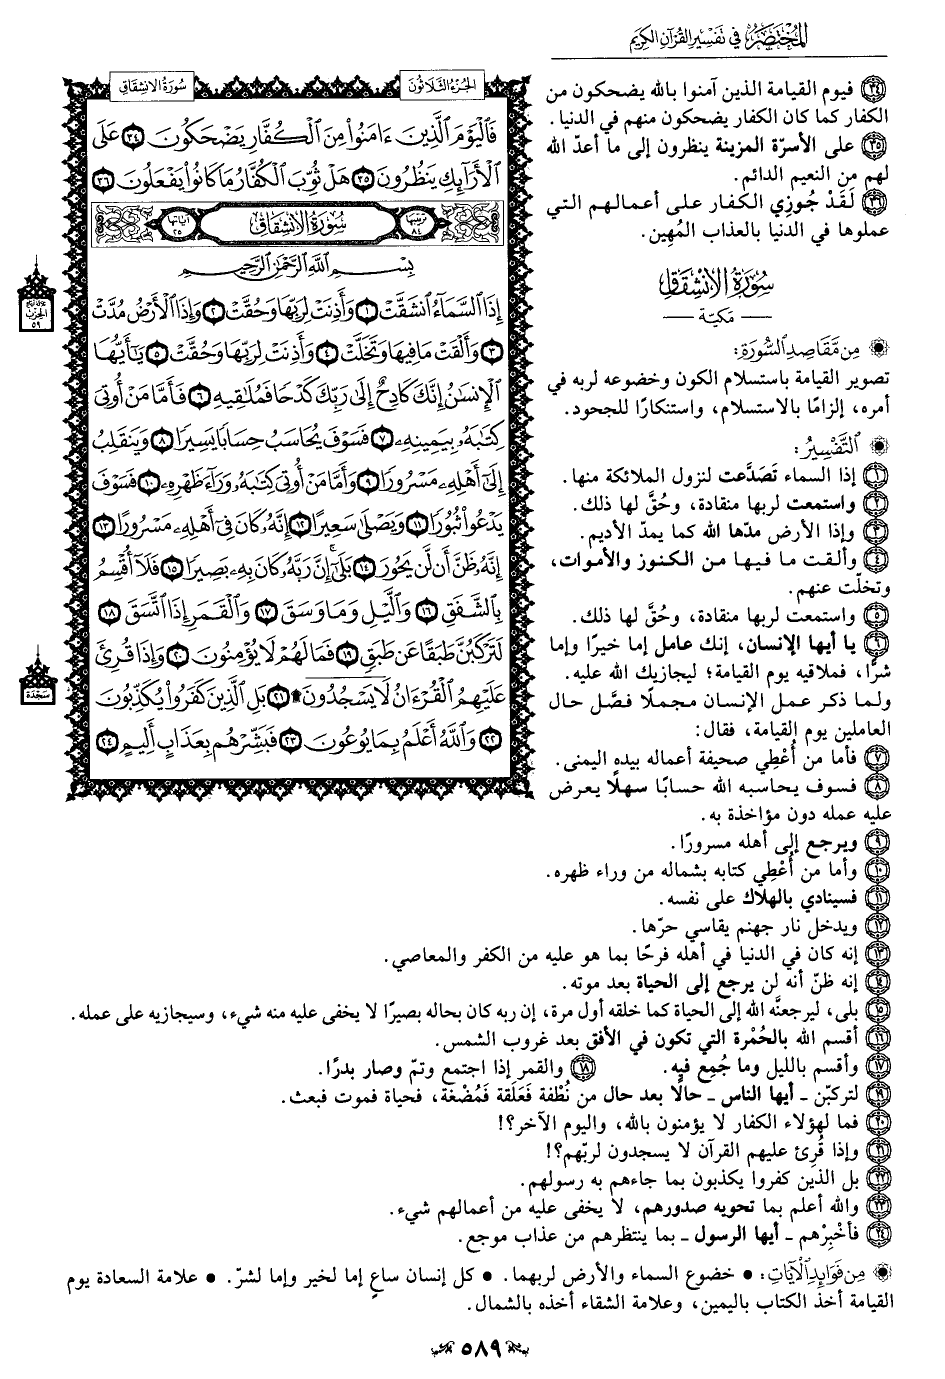 المُخْتَصَرُ فِي تَفْسِيرِ القُرْآنِ الكَرِيم
الجُزْءُ الثَّلَاثُونَ
سُورَةُ الانْشِقَاقِ
فَالْيَوْمَ الَّذِينَ ءَامَنُوا۟ مِنَ الْكُفَّارِ يَضْحَكُونَ ٣٤ عَلَى
الْأَرَآئِكِ يَنظُرُونَ ٣٥ هَلْ ثُوِّبَ الْكُفَّارُ مَا كَانُوا۟ يَفْعَلُونَ ٣٦
ترتيبها ٨٤ سُورَةُ الانْشِقَاقِ آياتها ٢٥
بِسْمِ اللَّهِ الرَّحْمَٰنِ الرَّحِيمِ
إِذَا السَّمَآءُ انشَقَّتْ ١ وَأَذِنَتْ لِرَبِّهَا وَحُقَّتْ ٢ وَإِذَا الْأَرْضُ مُدَّتْ
٣ وَأَلْقَتْ مَا فِيهَا وَتَخَلَّتْ ٤ وَأَذِنَتْ لِرَبِّهَا وَحُقَّتْ ٥ يَٰٓأَيُّهَا
الْإِنسَٰنُ إِنَّكَ كَادِحٌ إِلَىٰ رَبِّكَ كَدْحًا فَمُلَٰقِيهِ ٦ فَأَمَّا مَنْ أُوتِىَ
كِتَٰبَهُۥ بِيَمِينِهِۦ ٧ فَسَوْفَ يُحَاسَبُ حِسَابًا يَسِيرًا ٨ وَيَنقَلِبُ
إِلَىٰٓ أَهْلِهِۦ مَسْرُورًا ٩ وَأَمَّا مَنْ أُوتِىَ كِتَٰبَهُۥ وَرَآءَ ظَهْرِهِۦ ١٠ فَسَوْفَ
يَدْعُوا۟ ثُبُورًا ١١ وَيَصْلَىٰ سَعِيرًا ١٢ إِنَّهُۥ كَانَ فِىٓ أَهْلِهِۦ مَسْرُورًا ١٣
إِنَّهُۥ ظَنَّ أَن لَّن يَحُورَ ١٤ بَلَىٰٓ إِنَّ رَبَّهُۥ كَانَ بِهِۦ بَصِيرًا ١٥ فَلَآ أُقْسِمُ
بِالشَّفَقِ ١٦ وَالَّيْلِ وَمَا وَسَقَ ١٧ وَالْقَمَرِ إِذَا اتَّسَقَ ١٨
لَتَرْكَبُنَّ طَبَقًا عَن طَبَقٍ ١٩ فَمَا لَهُمْ لَا يُؤْمِنُونَ ٢٠ وَإِذَا قُرِئَ
عَلَيْهِمُ الْقُرْءَانُ لَا يَسْجُدُونَ ۩ ٢١ بَلِ الَّذِينَ كَفَرُوا۟ يُكَذِّبُونَ
٢٢ وَاللَّهُ أَعْلَمُ بِمَا يُوعُونَ ٢٣ فَبَشِّرْهُم بِعَذَابٍ أَلِيمٍ ٢٤
الحِزْبُ
٥٩
سَجْدَة
٣٤ فيوم القيامة الذين آمنوا بالله يضحكون من
الكفار كما كان الكفار يضحكون منهم في الدنيا.
٣٥ على الأسرّة المزينة ينظرون إلى ما أعدّ الله
لهم من النعيم الدائم.
٣٦ لَقَدْ جُوزِي الكفار على أعمالهم التي
عملوها في الدنيا بالعذاب المُهِين.
سُورَةُ الانْشِقَاقِ
— مَكيّة —
مِن مَّقَاصِدِ السُّورَةِ:
تصوير القيامة باستسلام الكون وخضوعه لربه في
أمره، إلزامًا بالاستسلام، واستنكارًا للجحود.
التَّفْسِيرُ:
١ إذا السماء تَصَدَّعت لنزول الملائكة منها.
٢ واستمعت لربها منقادة، وحُقَّ لها ذلك.
٣ وإذا الأرض مدّها الله كما يمدّ الأديم.
٤ وألقت ما فيها من الكنوز والأموات،
وتخلّت عنهم.
٥ واستمعت لربها منقادة، وحُقَّ لها ذلك.
٦ يا أيها الإنسان، إنك عامل إما خيرًا وإما
شرًّا، فملاقيه يوم القيامة؛ ليجازيك الله عليه.
ولما ذكر عمل الإنسان مجملًا فصّل حال
العاملين يوم القيامة، فقال:
٧ فأما من أُعْطِي صحيفة أعماله بيده اليمنى.
٨ فسوف يحاسبه الله حسابًا سهلًا يعرض
عليه عمله دون مؤاخذة به.
٩ ويرجع إلى أهله مسرورًا.
١٠ وأما من أُعْطِي كتابه بشماله من وراء ظهره.
١١ فسينادي بالهلاك على نفسه.
١٢ ويدخل نار جهنم يقاسي حرّها.
١٣ إنه كان في الدنيا في أهله فرحًا بما هو عليه من الكفر والمعاصي.
١٤ إنه ظنّ أنه لن يرجع إلى الحياة بعد موته.
١٥ بلى، ليرجعنَّه الله إلى الحياة كما خلقه أول مرة، إن ربه كان بحاله بصيرًا لا يخفى عليه منه شيء، وسيجازيه على عمله.
١٦ أقسم الله بالحُمْرة التي تكون في الأفق بعد غروب الشمس.
١٧ وأقسم بالليل وما جُمِع فيه. ١٨ والقمر إذا اجتمع وتمّ وصار بدرًا.
١٩ لتركبّن ـ أيها الناس ـ حالًا بعد حال من نُطْفة فَعَلَقة فَمُضْغة، فحياة فموت فبعث.
٢٠ فما لهؤلاء الكفار لا يؤمنون بالله، واليوم الآخر؟!
٢١ وإذا قُرِئ عليهم القرآن لا يسجدون لربّهم؟!
٢٢ بل الذين كفروا يكذبون بما جاءهم به رسولهم.
٢٣ والله أعلم بما تحويه صدورهم، لا يخفى عليه من أعمالهم شيء.
٢٤ فأخْبِرْهم ـ أيها الرسول ـ بما ينتظرهم من عذاب موجع.
مِن فَوَائِدِ الآيَاتِ: • خضوع السماء والأرض لربهما. • كل إنسان ساعٍ إما لخير وإما لشرّ. • علامة السعادة يوم
القيامة أخذ الكتاب باليمين، وعلامة الشقاء أخذه بالشمال.
٥٨٩